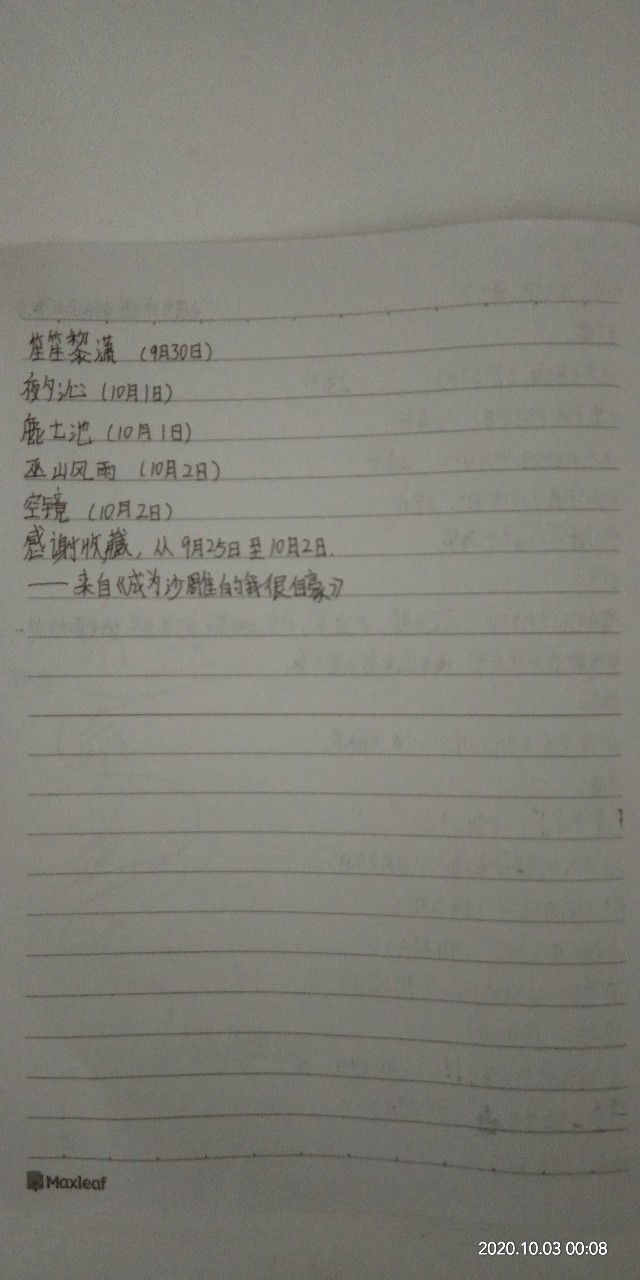 笙笙黎潇（9月30日）
夜夕沁（10月1日）
鹿士池（10月1日）
巫山风雨（10月2日）
空镜（10月2日）
感谢收藏，从9月25日至10月2日.
——来自《成为沙雕的我很自豪》
Maxleaf
2020.10.03 00:08